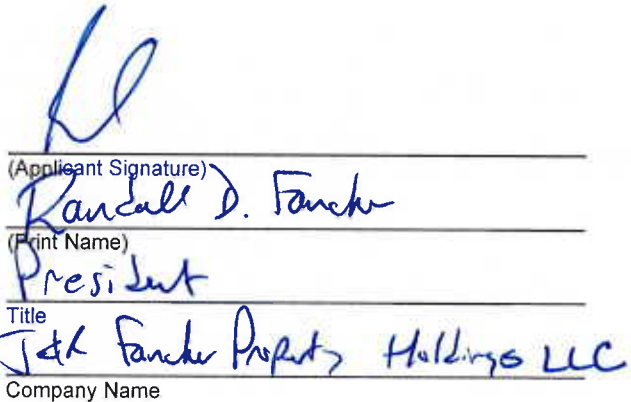 (Applicant Signature)
Randall D. Fancher
(Print Name)
President
Title
J&R Fancher Property Holdings LLC
Company Name